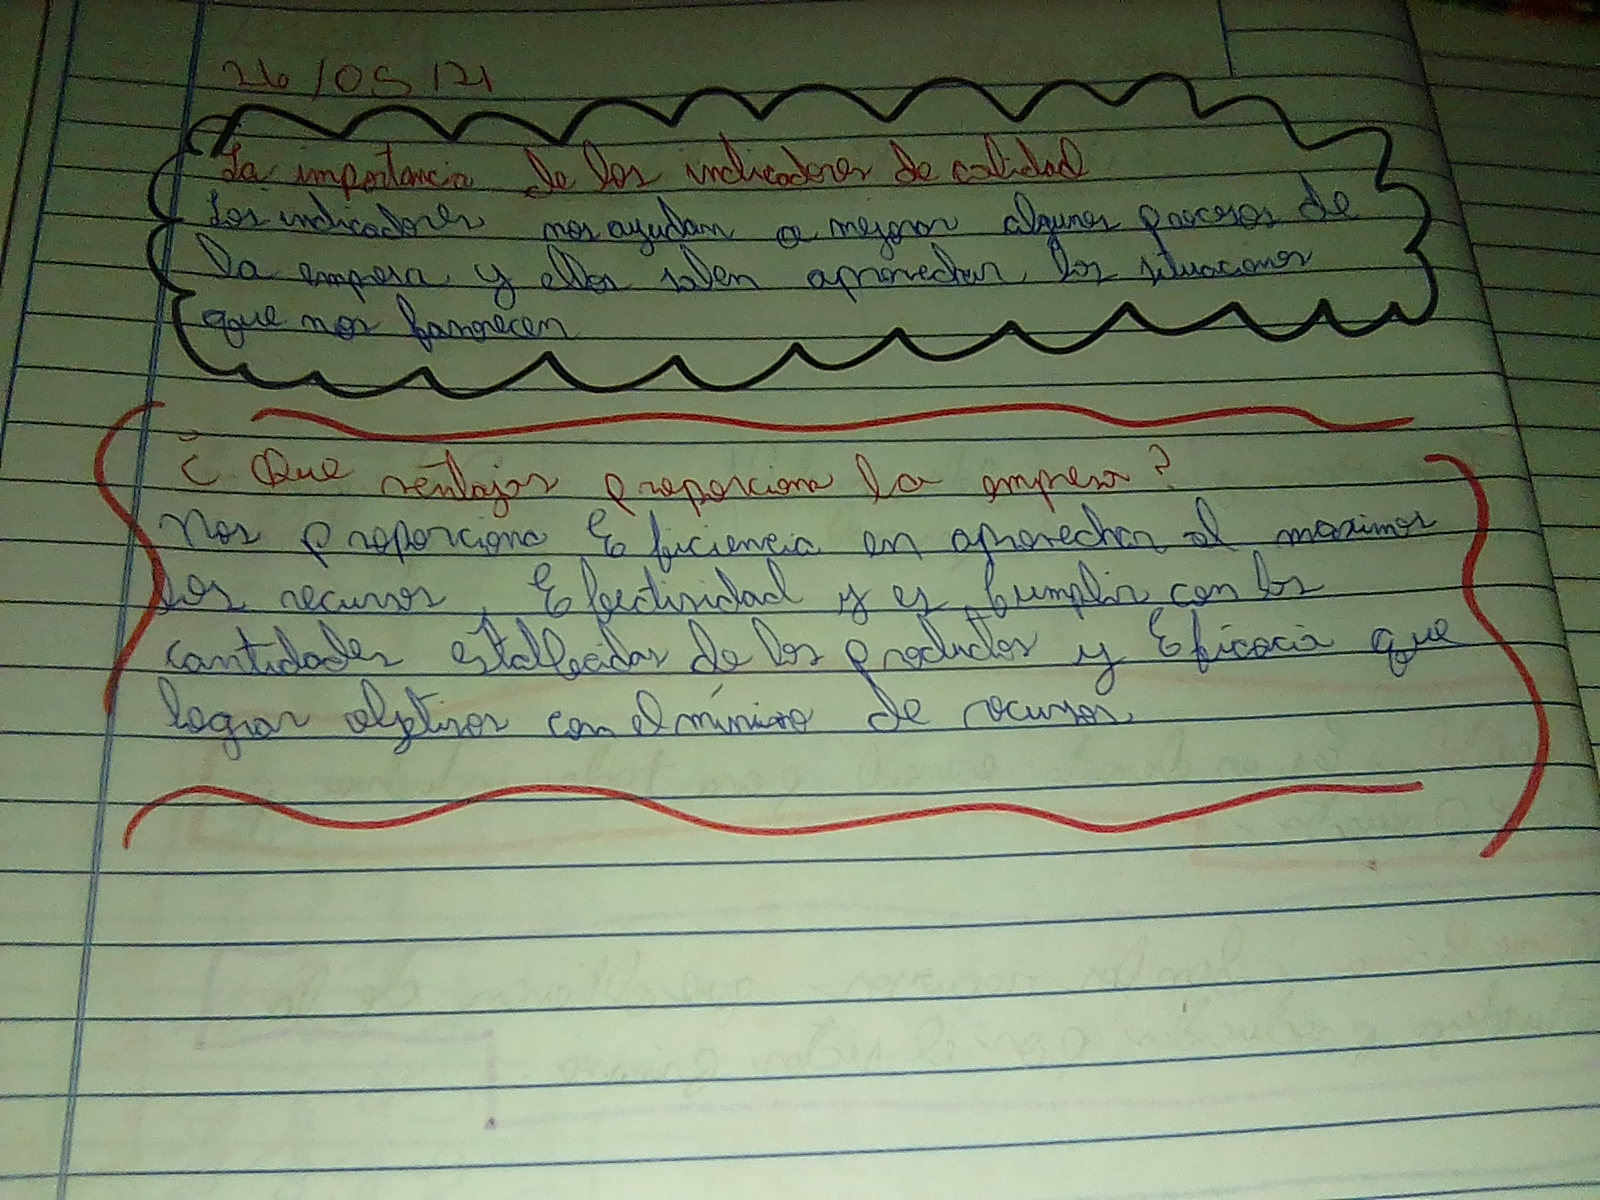 26/05/21
La importancia de los indicadores de calidad
Los indicadores nos ayudan a mejorar algunos procesos de
la empresa y ellos saben aprovechar los situaciones
que nos favorecen
¿ Que ventajas proporciona la empresa?
Nos proporciona Eficiencia en aprovechar al maximos
los recursos, Efectividad y es cumplir con los
cantidades establecidas de los productos y Eficacia que
lograr objetivos con el mínimo de recursos.